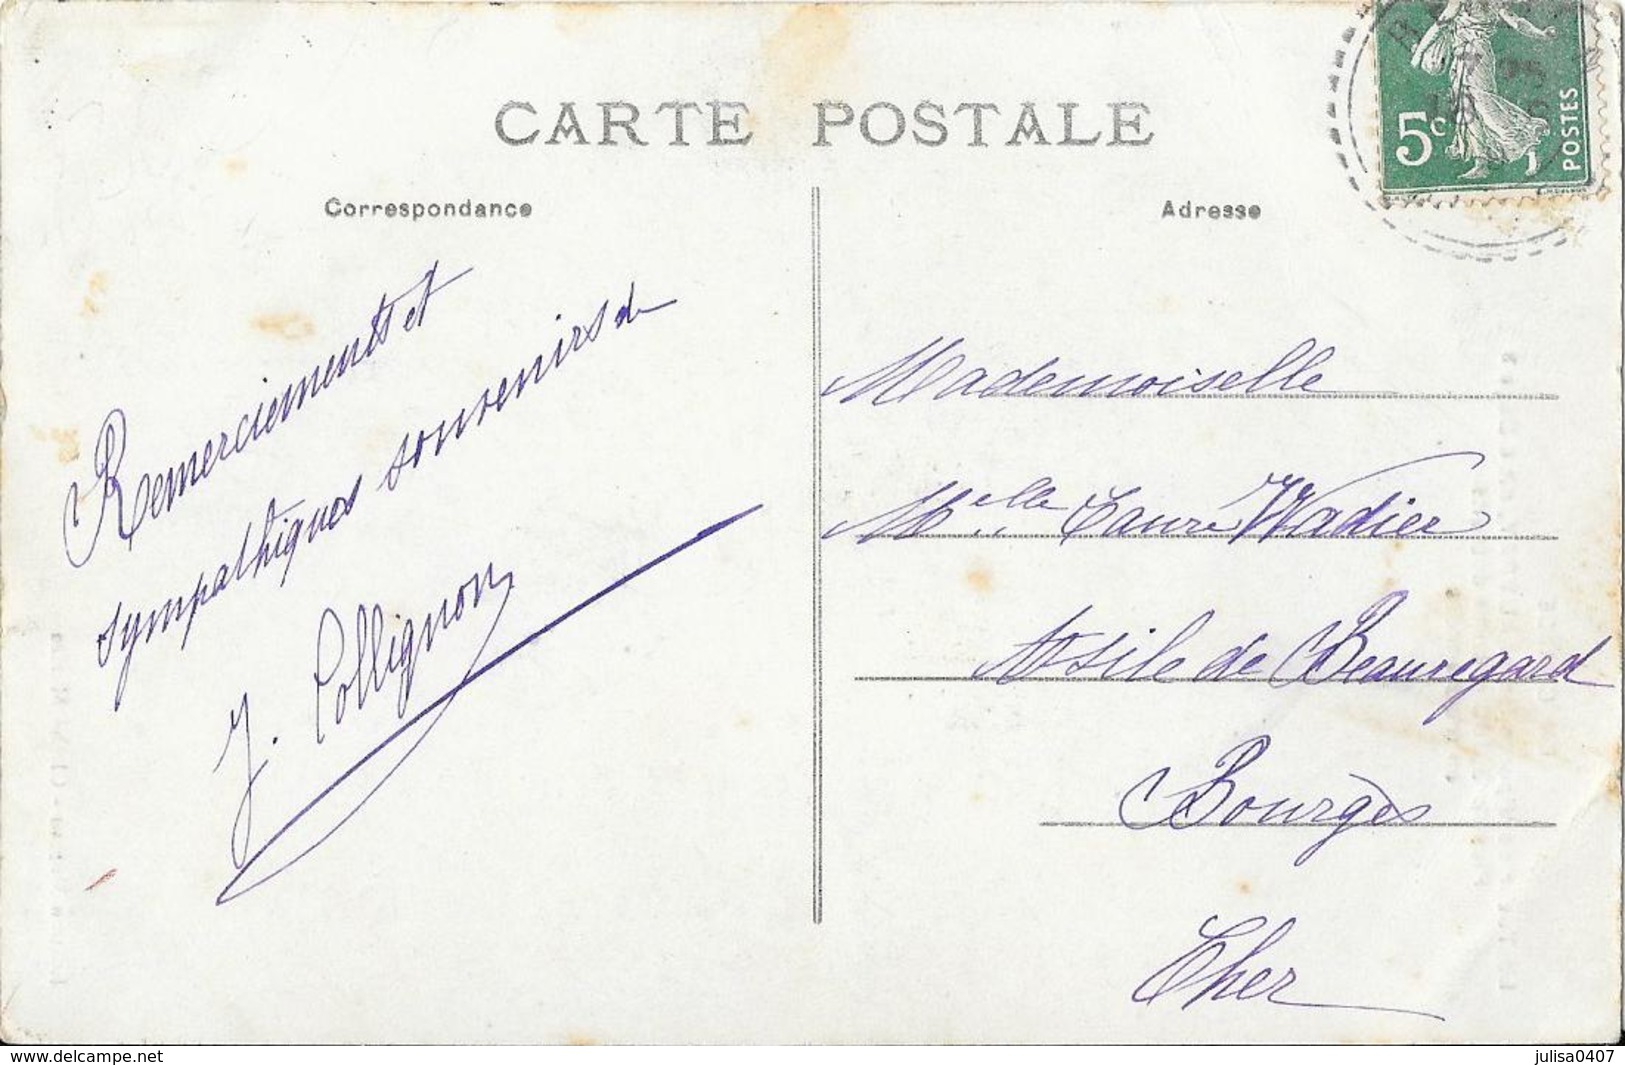 CARTE POSTALE
Correspondance
Remerciements et
sympathiques souvenirs de
J. Collignon
Adresse
5c
POSTES
Mademoiselle
Melle Laure Wadier
Asile de Beauregard
Bourges
Cher
www.delcampe.net
julisa0407